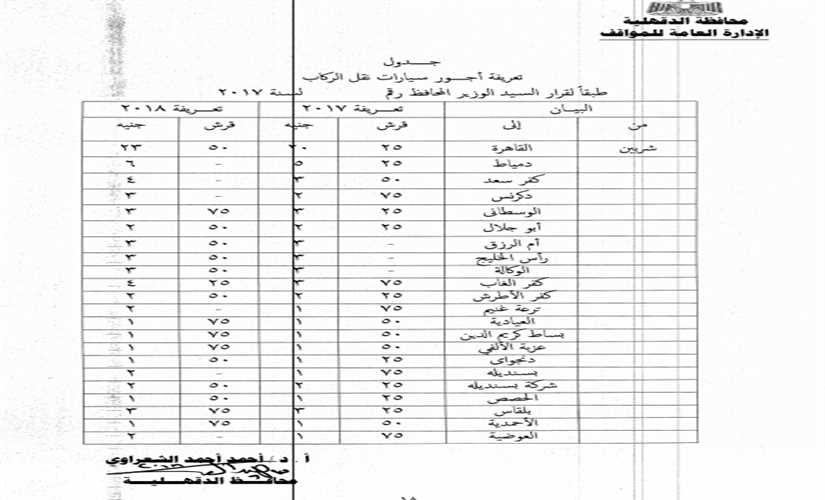 محافظة الدقهلية
الإدارة العامة للمواقف
جـــدول
تعريفة أجـور سيارات نقل الركاب
طبقاً لقرار السيد الوزير المحافظ رقم لسنة ٢٠١٧
البيـــان تعـــريفة ٢٠١٧ تعـــريفة ٢٠١٨
من إلى قرش جنيه قرش جنيه
شربين القاهرة ٢٥ ٢٠ ٥٠ ٢٣
دمياط ٢٥ ٥ - ٦
كفر سعد ٥٠ ٣ - ٤
دكرنس ٧٥ ٢ - ٣
الوسطانى ٢٥ ٣ ٧٥ ٣
أبو جلال ٢٥ ٢ ٥٠ ٢
أم الرزق - ٣ ٥٠ ٣
رأس الخليج - ٣ ٥٠ ٣
الوكالة - ٣ ٥٠ ٣
كفر الغاب ٧٥ ٣ ٢٥ ٤
كفر الأطرش ٢٥ ٢ ٥٠ ٢
ترعة غنيم ٧٥ ١ - ٢
العيادية ٥٠ ١ ٧٥ ١
بساط كريم الدين ٥٠ ١ ٧٥ ١
عزبة الألفي ٥٠ ١ ٧٥ ١
دنجواى ٢٥ ١ ٥٠ ١
بسنديله ٧٥ ١ - ٢
شركة بسنديله ٢٥ ٢ ٥٠ ٢
الحصص ٢٥ ١ ٥٠ ١
بلقاس ٢٥ ٣ ٧٥ ٣
الأحمدية ٥٠ ١ ٧٥ ١
العوضية ٧٥ ١ - ٢
أ . د / أحمد أحمد الشعراوي
محافـــظ الدقهليـــة